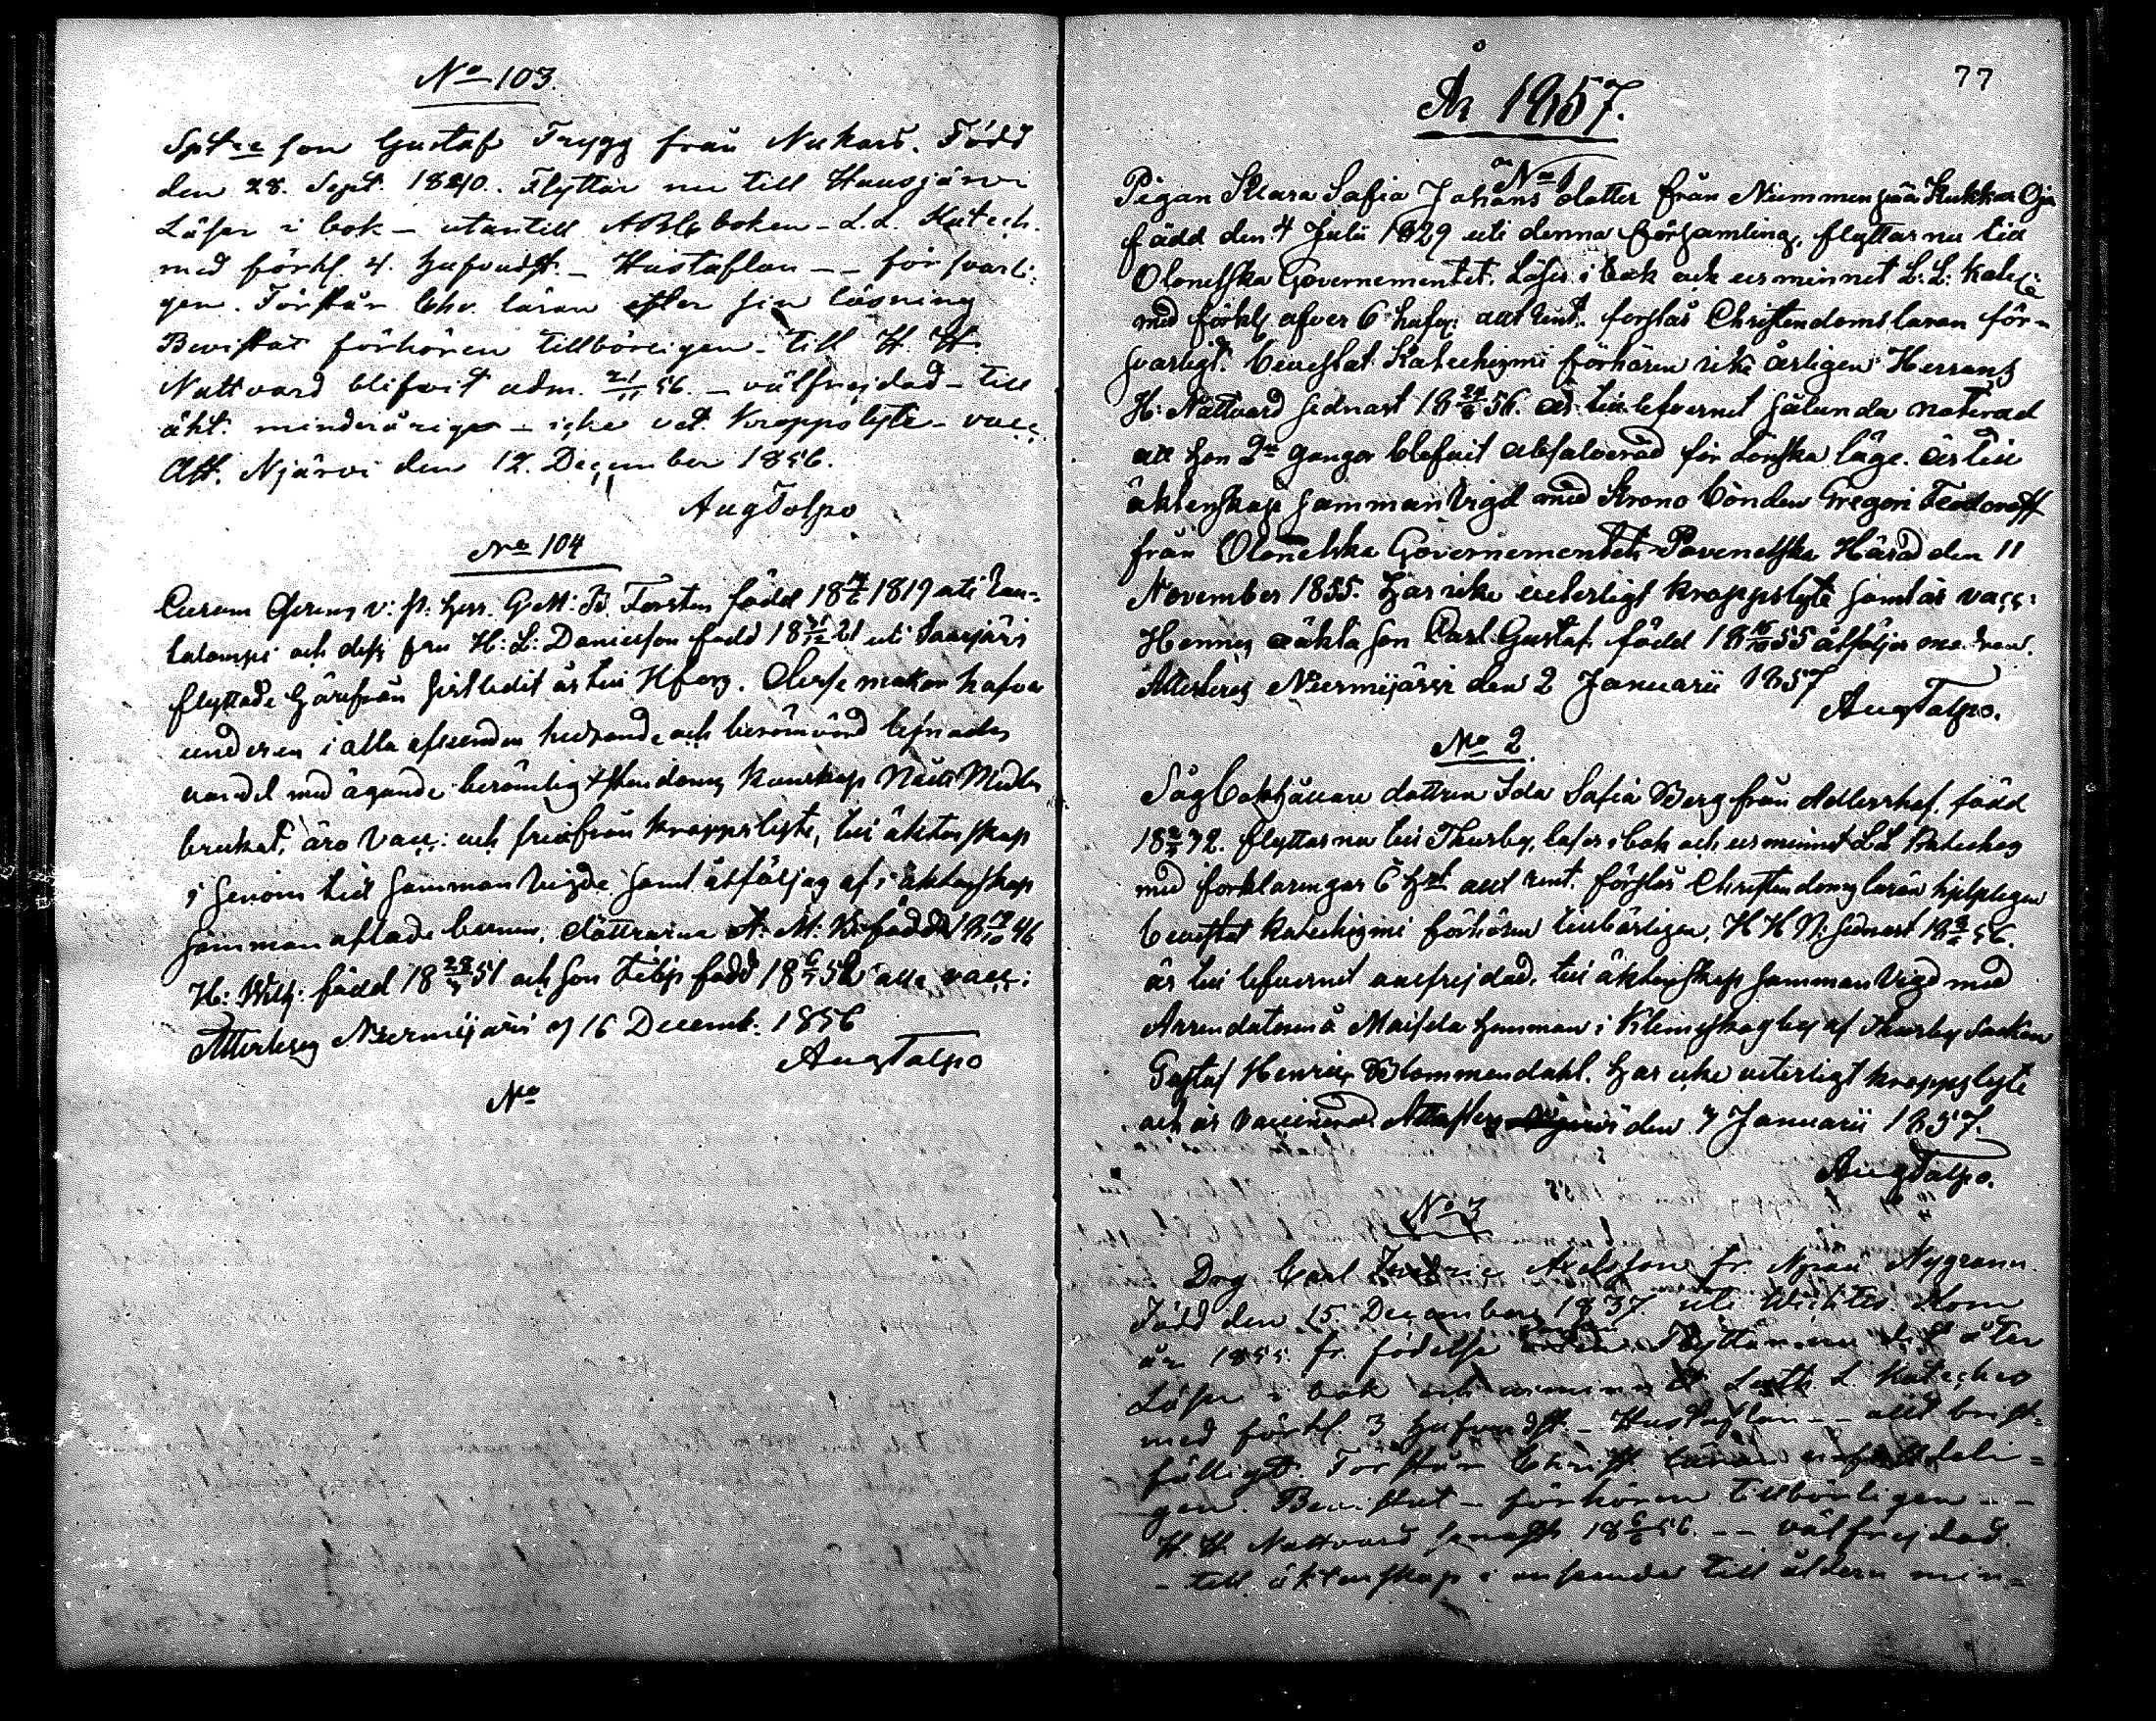 No 103.
Spt:re son Gustaf Trygg från Nukars. Född
den 28. Sept. 1840. Flyttar nu till Hausjärvi
Läser i bok - utantill ABC boken - L. L. Katech.
med förkl. 4. hufvudst. - Hustaflan - - försvarli:
gen. Förstår Chr. läran efter sin läsning
Bevistat förhören tillbörligen - till H. H.
Nattvard blifvit adm. 56. - välfrejdad - till
äkt. minderårige - icke vet. Kroppslyte - vacc.
Att. Njärvi den 12. December 1856.
Aug Talpo
No 104
G. M: B. Forsten född 18 1819 uti
och dess fru H: L: Danielson född 18 21 uti Saarijärvi
flyttade härifrån till Hfors. makar hafva
under en i alla afseenden hedrande och berömvärd lefnads
vandel med ägande berömlig Xstendoms kunskap Natt: Medln
brukat, äro vacc: och fria från kroppslyte, till äktenskap
genom tid sammanvigde samt åtföljas af i äktenskap
sammanaflade barnen, döttrarna A: M: född 18 46
H: Wilh: född 18 51 och son Filip född 18 52 alla vacc:
Attesteras Nurmijärvi d 16 Decemb. 1856
Aug Talpo
No
År 1857.
77
No 1
Pigan Klara Sofia Johans dotter från Nummenpää Kukkar Oja
född den 4 Julii 1829 uti denna församling, flyttar nu till
Olonetska Governementet. Läser i bok och ur minnet L: L: Kateches
med förkl. öfver 6 hufv: allt rent. förstår Christendomsläran för-
svarligt. bevistat Katechizmi förhören icke årligen Herrans
H: Nattvard sednast 18 56. är till lefvernet sålunda noterad
att hon 2ne gånger blifvit absolverad för Lönska läge. är till
äktenskap sammanvigd med Krono bonden Gregori Feodoroff
från Olonetska Governementets Povenetska Härad den 11
November 1855. har icke veterligt kroppslyte samt är vacc:
Hennes oäkta son Carl Gustaf född 18 55 åtföljer modren.
Attesteras Nurmijärvi den 2 Januarii 1857
Aug Talpo.
No 2
Såg Bokhållare dottren Ida Sofia Berg från Adlershof. född
18 32. flyttar nu till Thusby, läser i bok och ur minnet LL Kateches
med förklaringar 6 hst allt rent. förstår Christendoms läran hjelpligen
bevistat katechizmi förhören tillbörligen, H H N: sednast 18 56.
är till lefvernet välfrejdad. till äktenskap sammanvigd med
Arrendatorn å Hemman i Klemetskog by af Thusby Socken
Gustaf Henric Blommendahl. har icke veterligt kroppslyte
och är vaccinerad Attesteras den 7 Januarii 1857.
Aug Talpo.
No 3
Drg Carl Fredric Axelsson fr. Npää Nygrann
Född den 15. December 1837 uti Wichtis. Kom
år 1855. fr. födelse Flyttar nu dit åter
Läser i bok och ur minnet Luth. L. Kateches
med förkl. 3 hufvudst. - Hustaflan - - allt brist=
fälligt. Förstår Christ. läran
gen. Bevistat - förhören tillbörligen - -
H. H. Nattvard senast 18 56. - - välfrejdad.
- till äktenskap i anseende till åldern min=